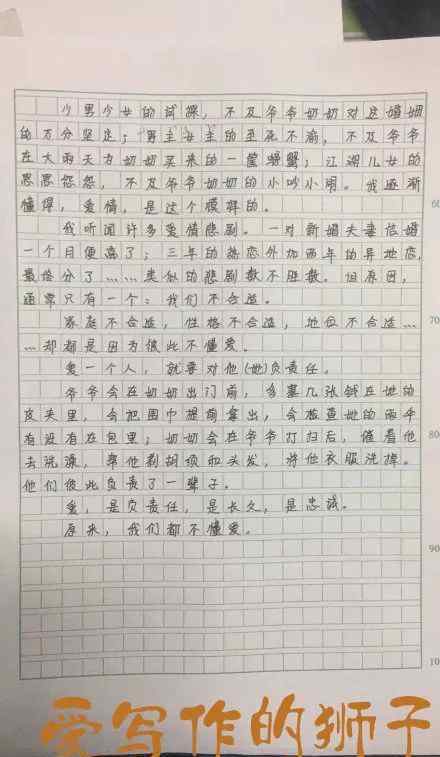 少男少女的试探，不及爷爷奶奶对这婚姻
的万分坚定；男主女主的至死不渝，不及爷爷
在大雨天为奶奶买来的一筐螃蟹；江湖儿女的
恩恩怨怨，不及爷爷奶奶的小吵小闹。我逐渐
懂得，爱情，是这个模样的。
我听闻许多爱情悲剧。一对新婚夫妻结婚
一个月便离了；三年的热恋外加两年的异地恋，
最终分了……类似的悲剧数不胜数。但原因，
通常只有一个：我们不合适。
家庭不合适，性格不合适，地位不合适…
…却都是因为彼此不懂爱。
爱一个人，就要对他(她)负责任。
爷爷会在奶奶出门前，多塞几张钱在她的
皮夹里，会把围巾提前拿出，会检查她的雨伞
有没有在包里；奶奶会在爷爷打扫后，催着他
去洗澡，帮他剃胡须和头发，将他衣服洗掉。
他们彼此负责了一辈子。
爱，是负责任，是长久，是忠诚。
原来，我们都不懂爱。
60
70
80
90
10
爱写作的狮子